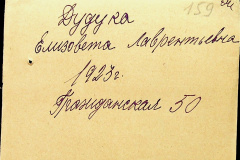 159
Дудука
Елизовета Лаврентьевна
1923г.
Гражданская 50